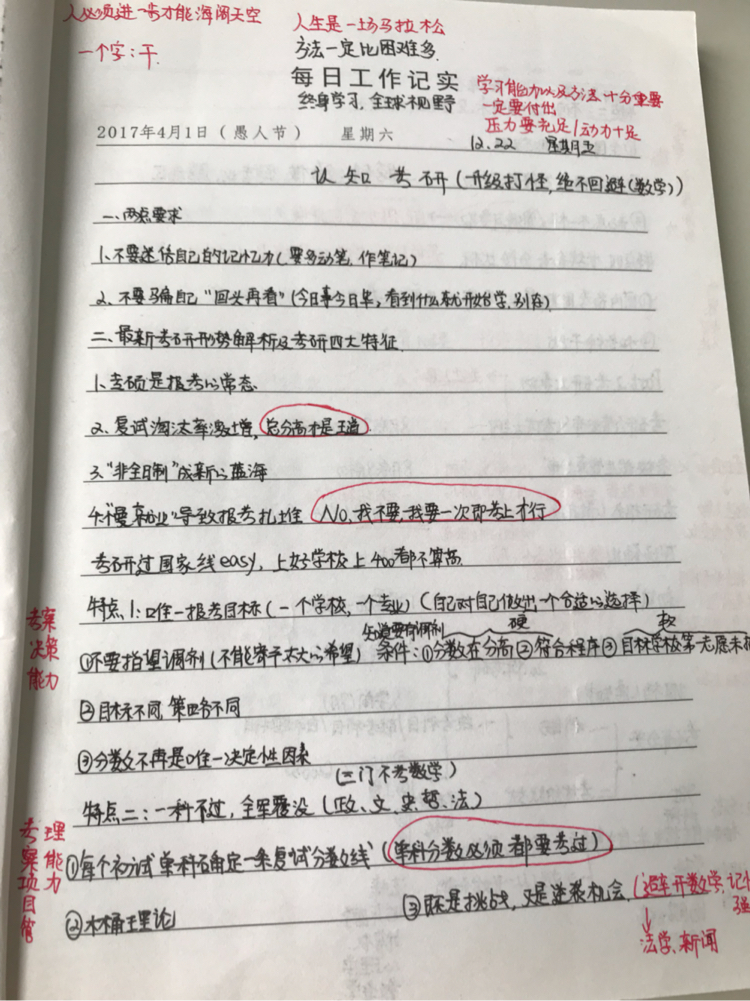 人必须进一步才能海阔天空
人生是一场马拉松
一个字：干.
方法一定比困难多.
每日工作记实
终身学习,全球视野
学习能力以及方法十分重要
一定要付出
压力要充足/动力十足
2017年4月1日（愚人节） 星期六
12.22 星期五
认知考研(升级打怪,绝不回避(数学))
一、两点要求
1、不要迷信自己的记忆力(要多动笔、作笔记)
2、不要骗自己"回头再看"(今日事今日毕,看到什么就开始学,别存)
二、最新考研形势解析及考研四大特征
1、专硕是报考的常态.
2、复试淘汰率激增,总分高才是王道
3."非全日制"成新的蓝海
4."慢就业"导致报考扎堆 No,我不要,我要一次即考上才行
考研过国家线easy,上好学校上400都不算高
特点1:唯一报考目标(一个学校,一个专业)(自己对自己做出一个合适的选择)
考察决策能力
先说要有调剂 硬 软
①不要指望调剂(不能寄予太大的希望) 条件:①分数在分高②符合程序③目标学校第一志愿未
②目标不同,策略不同
③分数不再是唯一决定性因素
(三门不考数学)
特点二:一科不过,全军覆没(政、文、史、哲、法)
考察项目管理能力
①每个初试单科确定一条复试分数线(单科分数必须都要考过)
②木桶理论
③既是挑战,又是逆袭机会.(避开数学,记忆强
↓
法学、新闻